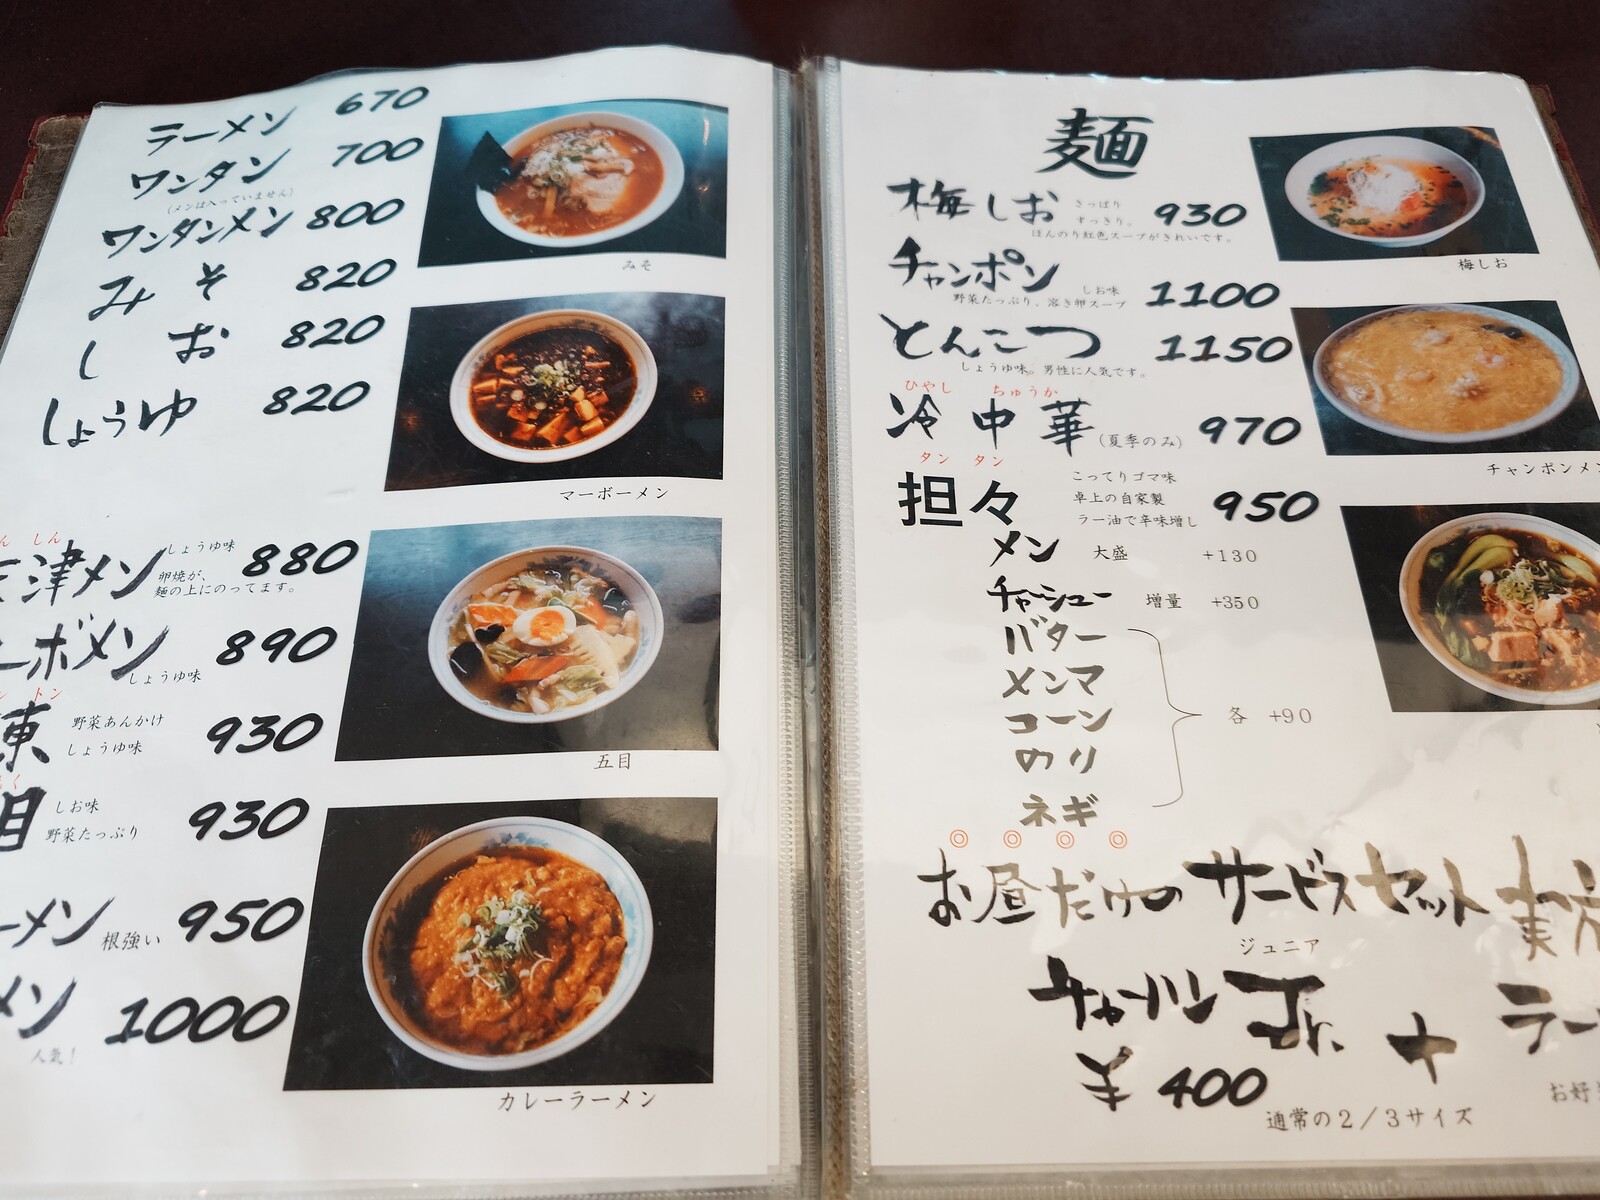 ラーメン 670
ワンタン 700
(メンは入っていません)
ワンタンメン 800
みそ 820
しお 820
しょうゆ 820
しん
津メン しょうゆ味 880
卵焼が、
麺の上にのってます。
ーボメン 890
しょうゆ味
トン
東 野菜あんかけ 930
しょうゆ味
く
目 しお味 930
野菜たっぷり
ーメン 根強い 950
メン 1000
人気!
みそ
マーボーメン
五目
カレーラーメン
麺
梅しお さっぱり 930
すっきり。
ほんのり紅色スープがきれいです。
チャンポン しお味 1100
野菜たっぷり、溶き卵スープ
とんこつ 1150
しょうゆ味。男性に人気です。
ひやし ちゅうか
冷中華 (夏季のみ) 970
タンタン
担々 こってりゴマ味 950
卓上の自家製
ラー油で辛味増し
メン 大盛 +130
チャーシュー 増量 +350
バター
メンマ
コーン
のり
ネギ
各 +90
◎ ◎ ◎ ◎
お昼だけのサービスセット
ジュニア
チャーハン Jr. +
¥400
通常の2/3サイズ
ラー
お好
梅しお
チャンポンメン